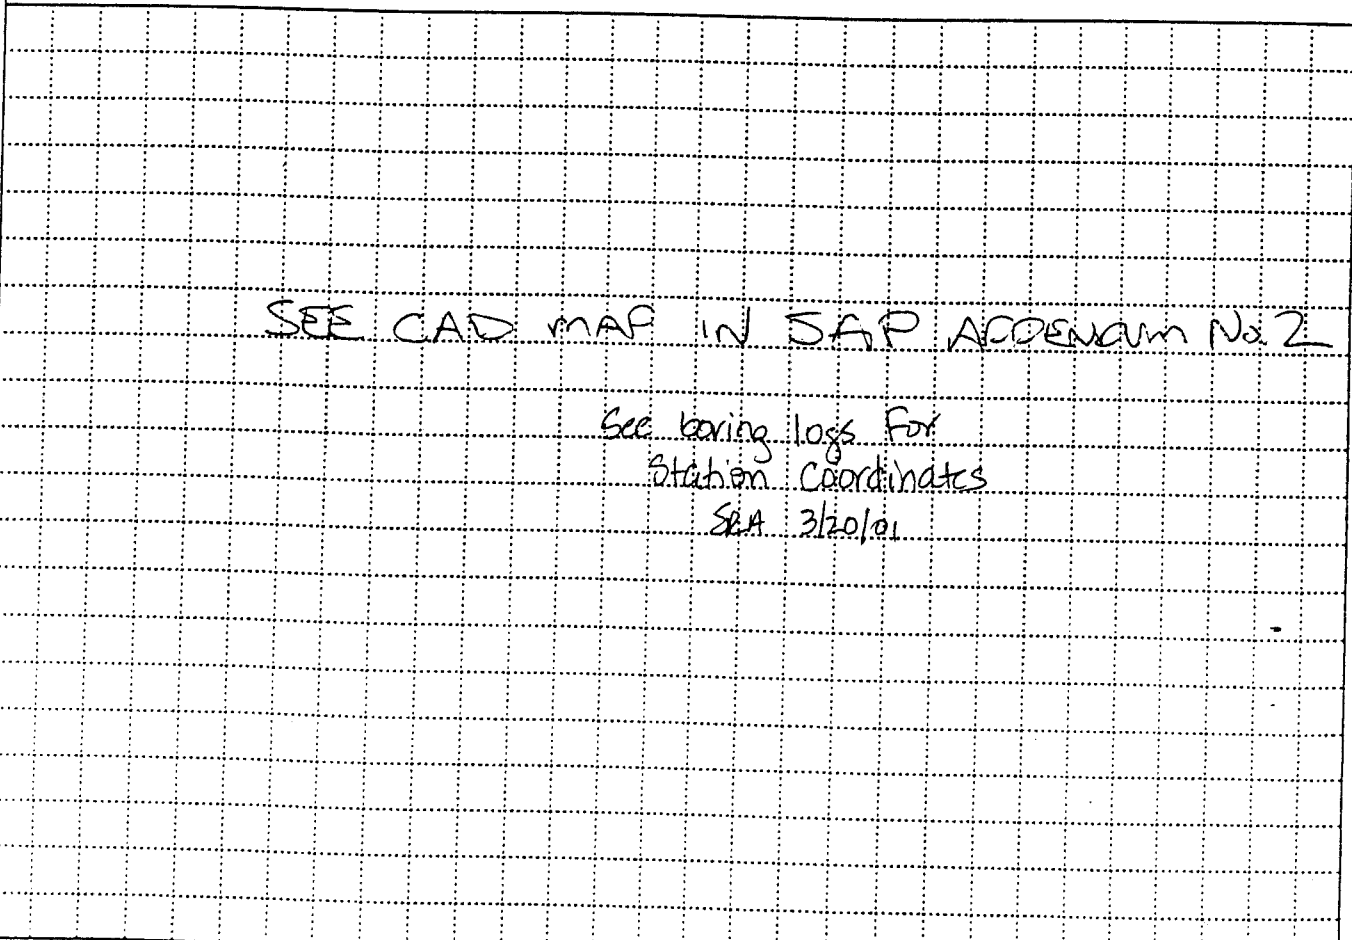 SEE CAD MAP IN SAP ADDENDUM No. 2
See boring logs For
Station Coordinates
SRA 3/20/01